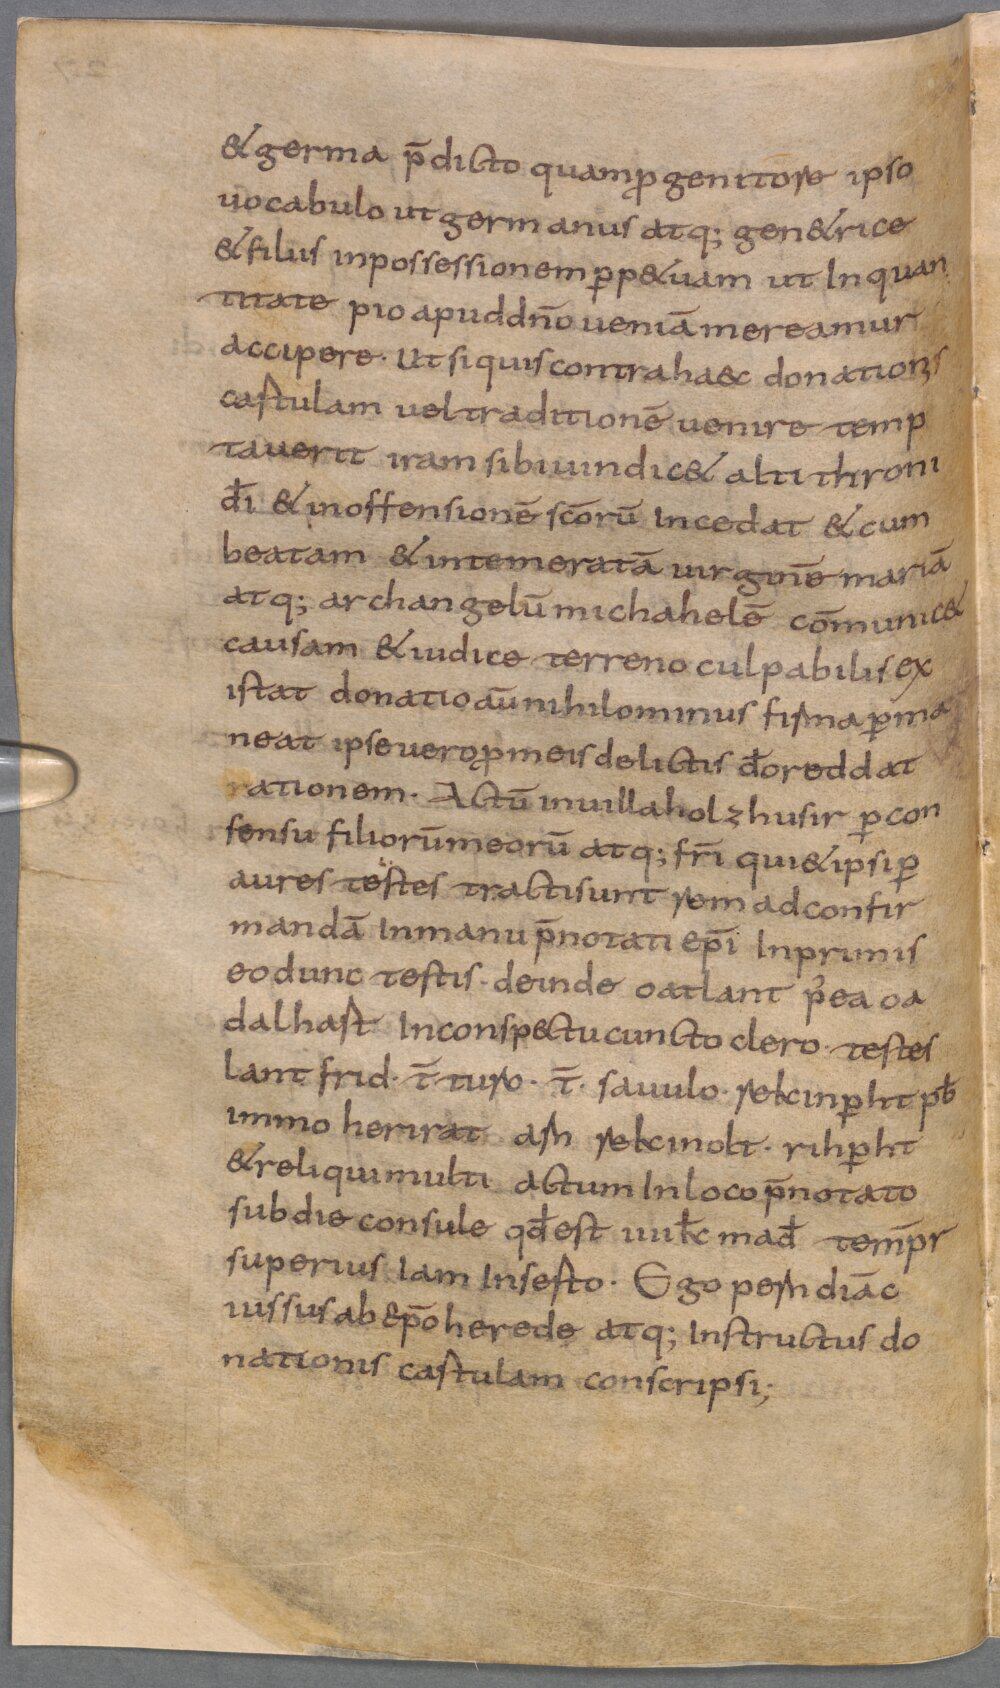 & germa p̄dicto quam ꝓ genitore ipso
uocabulo ut germanus atq; gen&rice
& filus in possessionem ꝑp&uam ut In quan
titate pio apud dn̄o ueniā mereamur
accipere. Ut si quis contra haec donationis
castulam uel traditionē uenire temp
tauerit iram sibi uindic& alti throni
dī & in offensionē scōrū Incedat & cum
beatam & intemeratā uirginē mariā
atq; archangelū michahelē cōmunic&
causam & iudice terreno culpabilis ex
istat donatio aū nihilominus firma ꝑma
neat ipse uero ꝓ meis delictis dō reddat
rationem. Actū in uilla holzhusir ꝑ con
sensu filiorū meorū atq; fr̄i qui & ipsi ꝑ
aures testes tracti sunt rem ad confir
mandā In manu p̄notati ep̄i In primis
eodunc testis. deinde oatlant p̄ea oa
dalhast In consp&tu cuncto clero. testes
lantfrid. t̄ turo. t̄. sauulo. reicinꝑht pƀ
immo herirat arn reicinolt. rihꝑht
& reliqui multi actum In loco p̄notato
sub die consule qđ est uii kƚ mađ temp̄r
superius Iam Inserto. Ego pern diāc
iussus ab ep̄o herede atq; Instructus do
nationis castulam conscripsi;